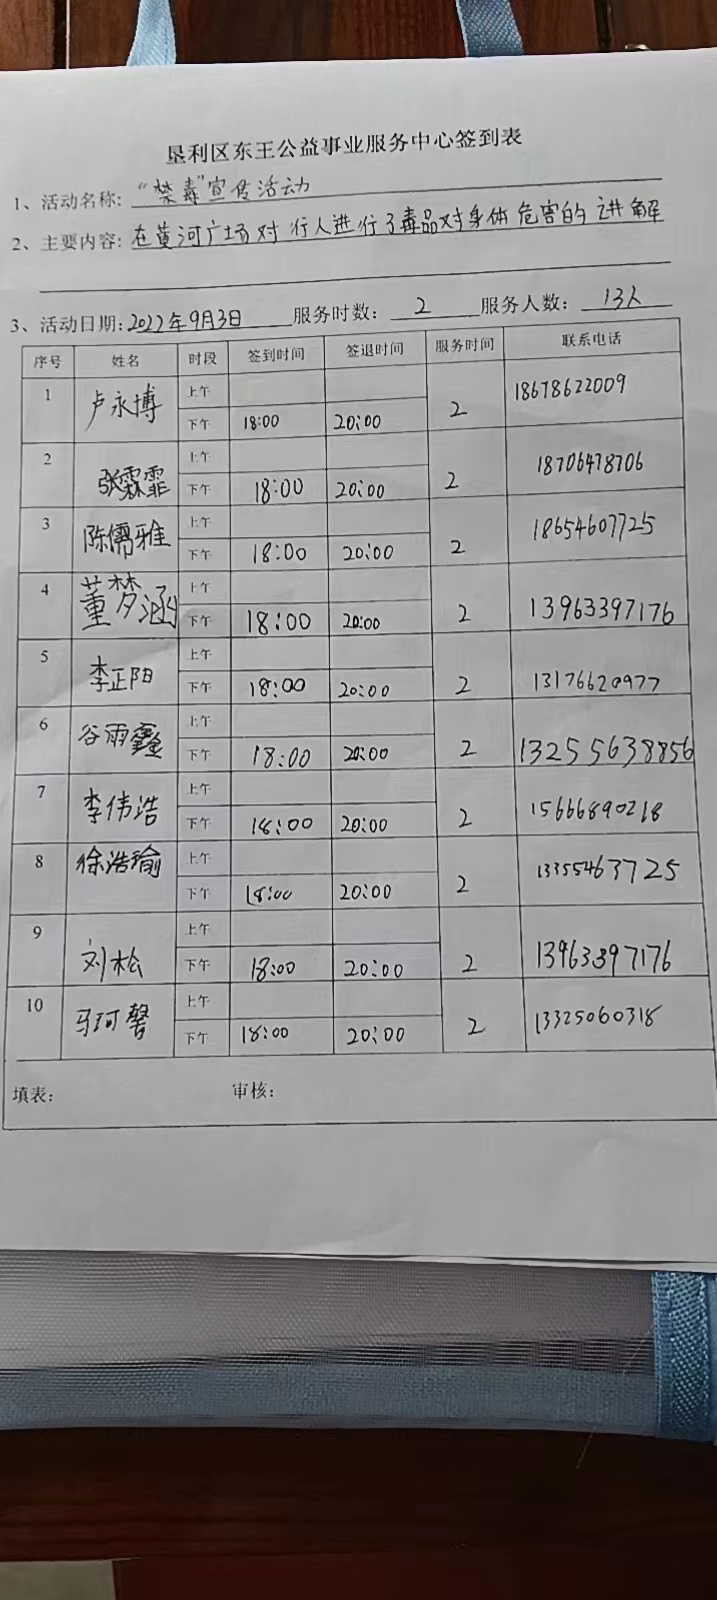 垦利区东王公益事业服务中心签到表
1、活动名称:“禁毒”宣传活动
2、主要内容:在黄河广场对行人进行了毒品对身体危害的讲解
3、活动日期:2022年9月3日 服务时数: 2 服务人数: 13人
序号 姓名 时段 签到时间 签退时间 服务时间 联系电话
1 卢永博 上午 2 18678622009
下午 18:00 20:00
2 张霖霏 上午 2 18706478706
下午 18:00 20:00
3 陈儒雅 上午 2 18654607725
下午 18:00 20:00
4 董梦涵 上午 2 13963397176
下午 18:00 20:00
5 李正阳 上午 2 13176620977
下午 18:00 20:00
6 谷雨鑫 上午 2 13255638856
下午 18:00 20:00
7 李伟浩 上午 2 15666890218
下午 18:00 20:00
8 徐浩瑜 上午 2 13355463725
下午 18:00 20:00
9 刘松 上午 2 13963397176
下午 18:00 20:00
10 马珂馨 上午 2 13325060318
下午 18:00 20:00
填表: 审核: